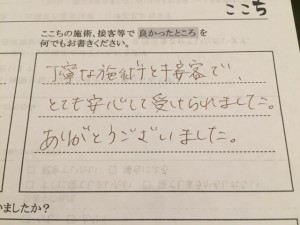 ここち
ここちの施術、接客等で良かったところを
何でもお書きください。
丁寧な施術と接客で、
とても安心して受けられました。
ありがとうございました。
いましたか？